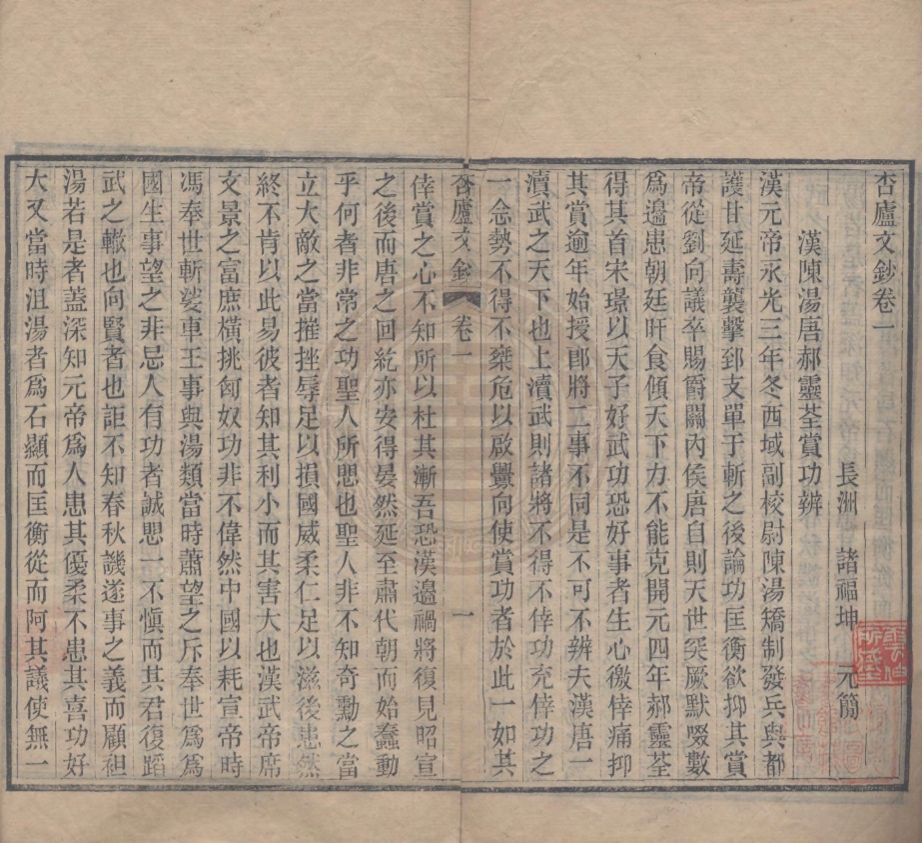 杏廬文鈔卷一
長洲 諸福坤 元簡
漢陳湯唐郝靈荃賞功辨
漢元帝永光三年冬西域副校尉陳湯矯制發兵與都
護甘延壽襲擊郅支單于斬之後論功匡衡欲抑其賞
帝從劉向議卒賜爵關內侯唐自則天世突厥默啜數
爲邊患朝廷旰食傾天下力不能克開元四年郝靈荃
得其首宋璟以天子好武功恐好事者生心徼倖痛抑
其賞逾年始授郎將二事不同是不可不辨夫漢唐一
瀆武之天下也上瀆武則諸將不得不倖功充倖功之
一念勢不得不椉危以啟釁向使賞功者於此一如其
杏廬文鈔 卷一 一
倖賞之心不知所以杜其漸吾恐漢邊禍將復見昭宣
之後而唐之回紇亦安得晏然延至肅代朝而始蠢動
乎何者非常之功聖人所愳也聖人非不知奇勳之當
立大敵之當摧挫辱足以損國威柔仁足以滋後患然
終不肯以此易彼者知其利小而其害大也漢武帝席
文景之富庶橫挑匈奴功非不偉然中國以耗宣帝時
馮奉世斬娑車王事與湯類當時蕭望之斥奉世爲爲
國生事望之非忌人有功者誠愳一不愼而其君復蹈
武之轍也向賢者也詎不知春秋譏遂事之義而顧袒
湯若是者蓋深知元帝爲人患其優柔不患其喜功好
大又當時沮湯者爲石顯而匡衡從而阿其議使無一